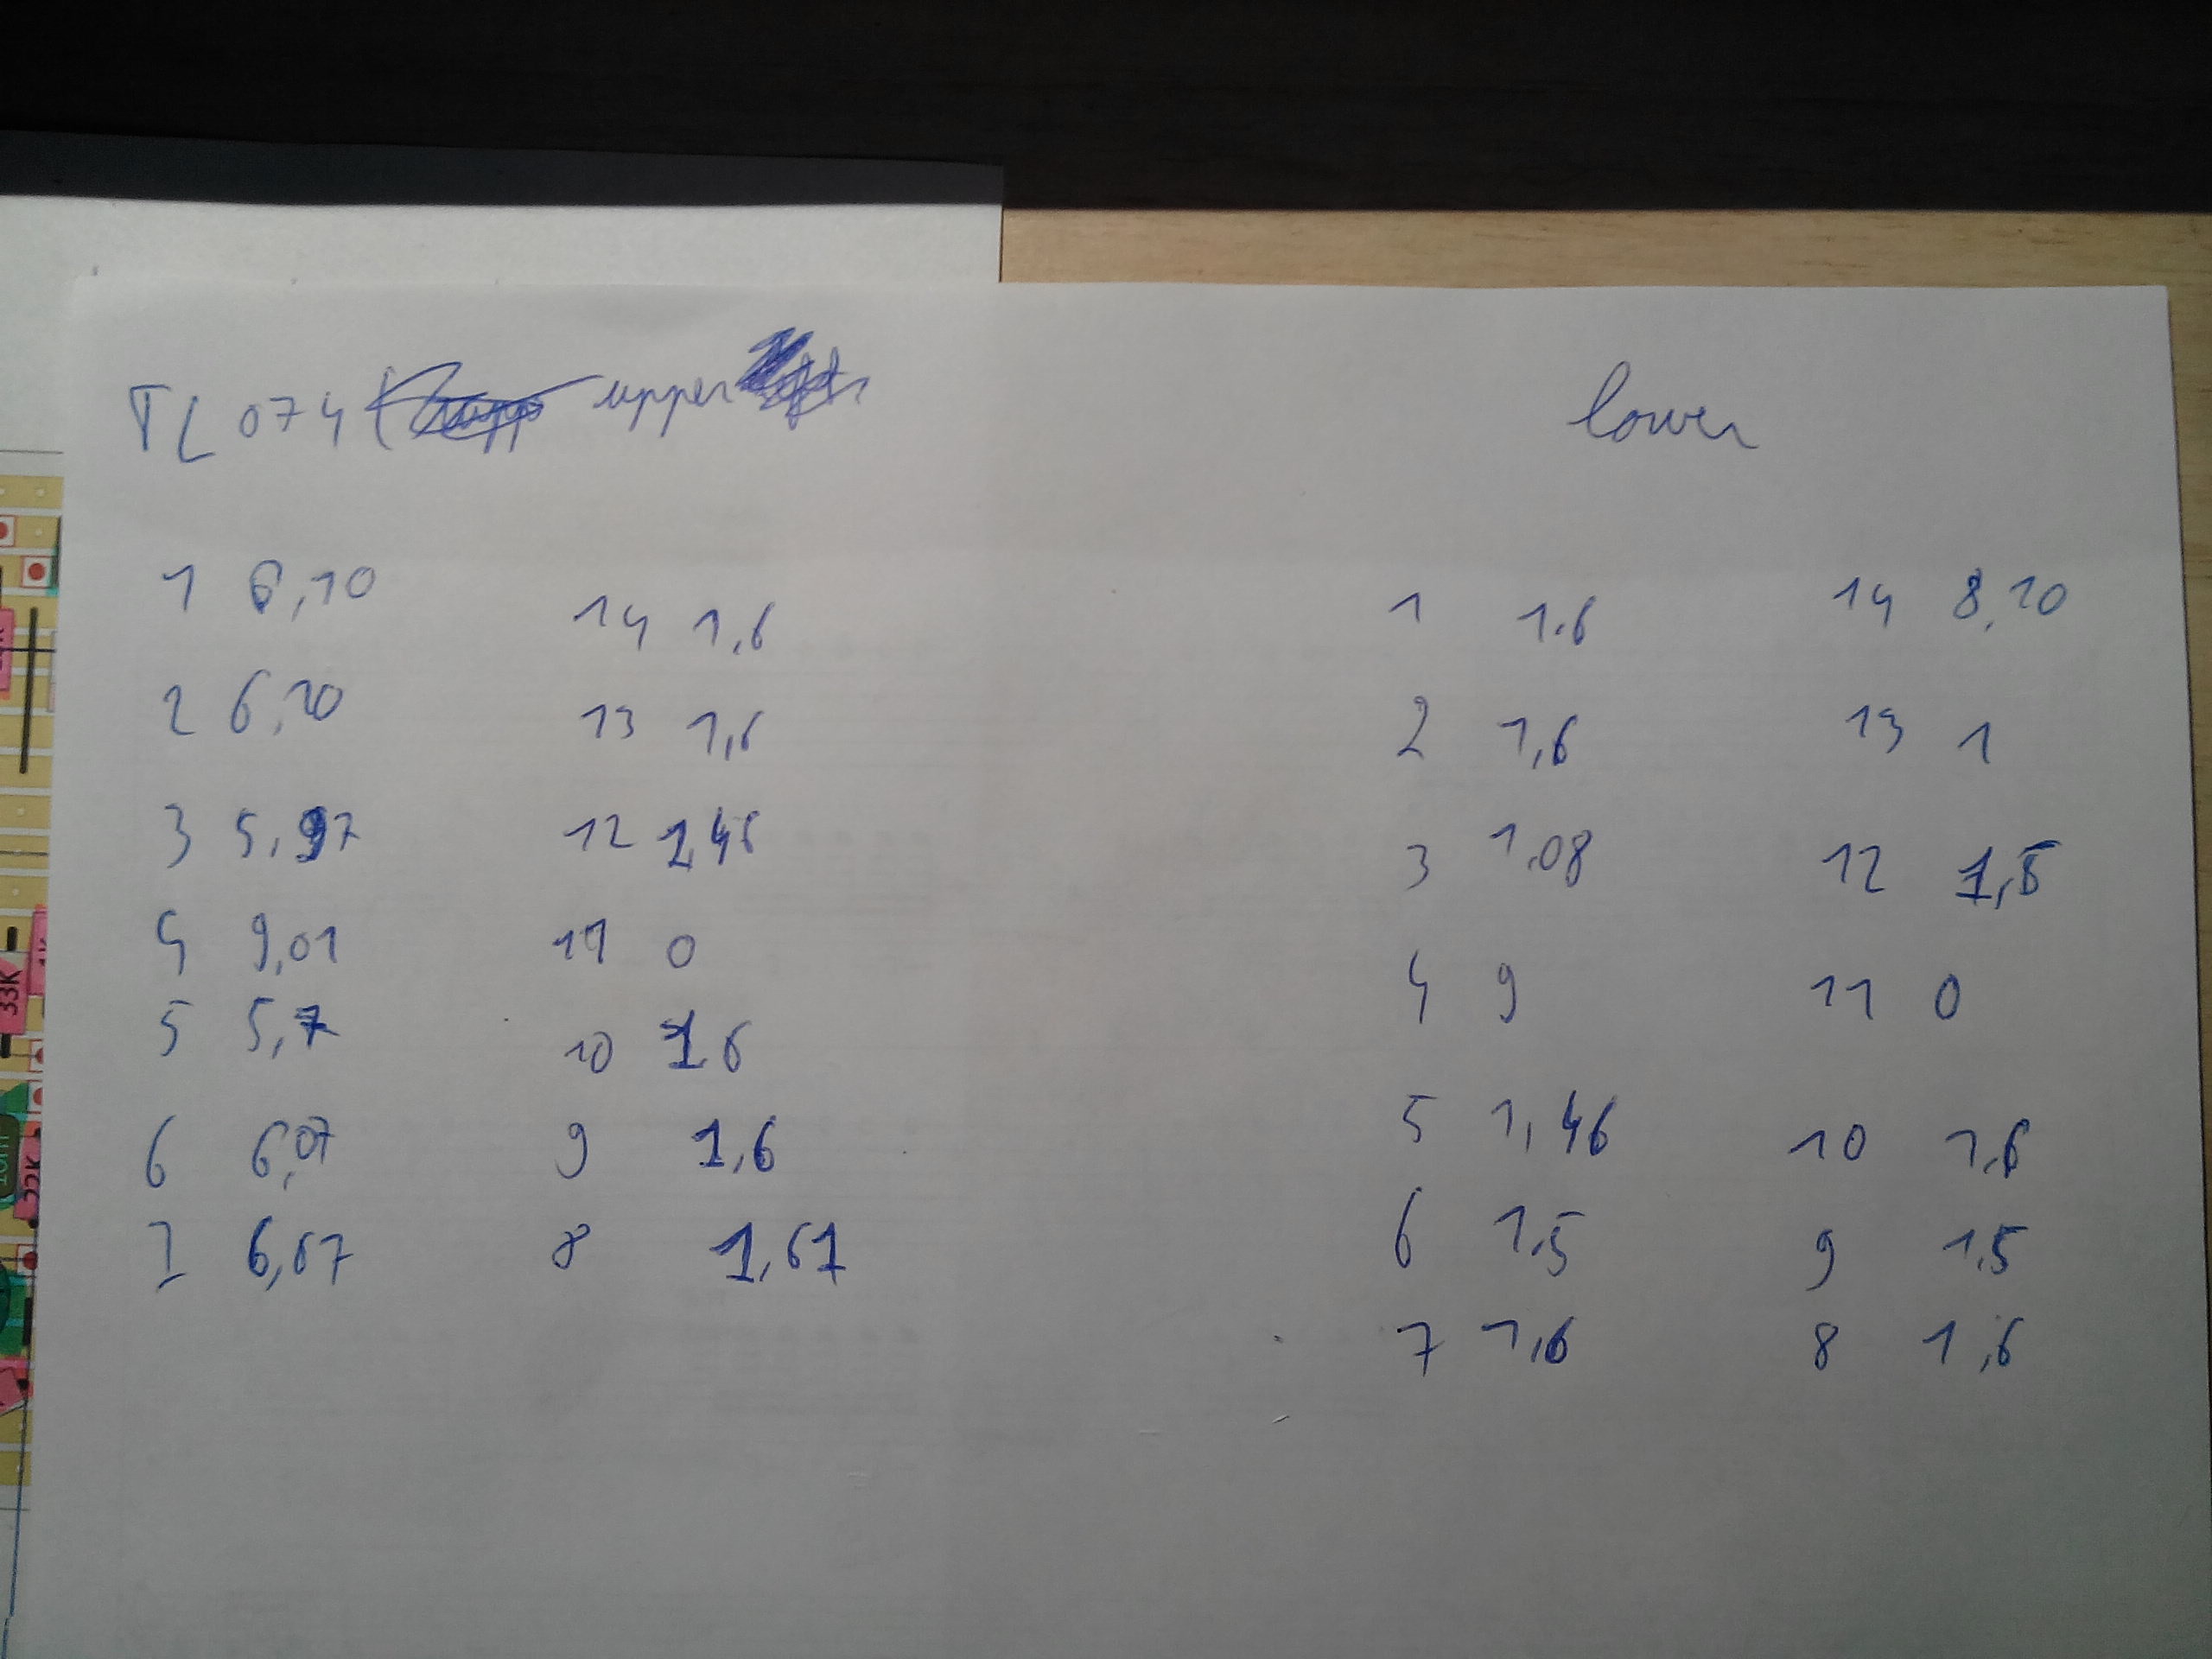 TL074 upper
lower
1 6,10
14 1,6
1 1.6
14 8,20
2 6,20
13 1,6
2 1,6
13 1
3 5,97
12 1,46
3 1,08
12 1,5
4 9,01
11 0
4 9
11 0
5 5,7
10 1,6
5 1,46
10 1,6
6 6,07
9 1,6
6 1,5
9 1,5
7 6,07
8 1,61
7 1,6
8 1,6
33K
22K